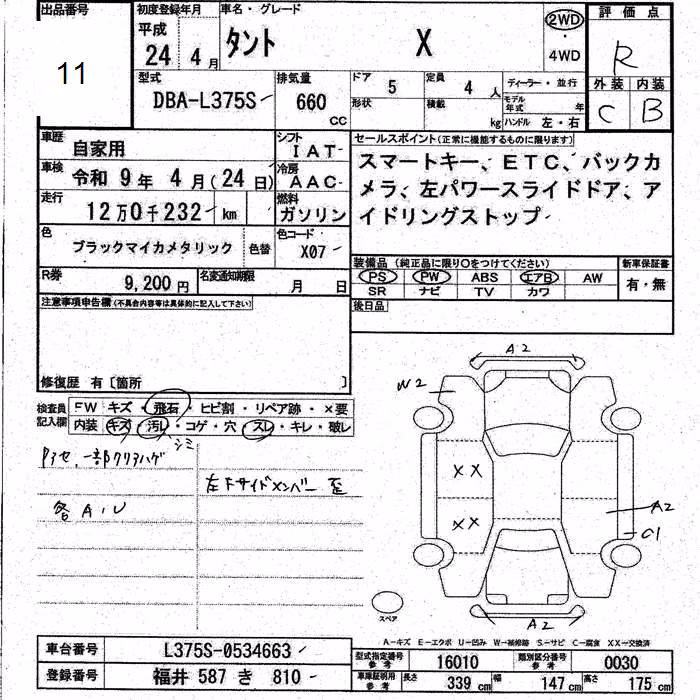 出品番号
11
初度登録年月
平成
24 年 4 月
車名・グレード
タント X
2WD
・
4WD
評価点
R
外装 内装
C B
型式
DBA-L375S
排気量
660 CC
ドア 5
定員 4 人
形状
積載 kg
ディーラー・並行
モデル年式 年
ハンドル 左・右
車歴
自家用
シフト
IAT
車検
令和 9 年 4 月 (24 日)
冷房
AAC
走行
12 万 0 千 232 km
燃料
ガソリン
色
ブラックマイカメタリック
色替
色コード
X07
R券
9,200 円
名変通知期限
月 日
セールスポイント (正常に機能するものに限ります)
スマートキー、ETC、バックカ
メラ、左パワースライドドア、ア
イドリングストップ
装備品 (純正品に限り○をつけてください)
PS PW ABS エアB AW
SR ナビ TV カワ
新車保証書
有・無
後日品
注意事項申告欄 (不具合内容等は具体的に記入して下さい)
修復歴 有 〔箇所 〕
検査員
記入欄
FW キズ ・ 飛石 ・ ヒビ割 ・ リペア跡 ・ ×要
内装 キズ ・ 汚レ ・ コゲ ・ 穴 ・ スレ ・ キレ ・ 破レ
シミ
アセ、一部クリアハゲ
各A、U
左下サイドメンバー 歪
A2
W2
XX
XX
A2
C1
A2
スペア
A-キズ E-エクボ U-凹み W-補修跡 S-サビ C-腐食 XX-交換済
車台番号
L375S-0534663
登録番号
福井 587 き 810
型式指定番号
参考
16010
類別区分番号
参考
0030
車庫証明用
参考
長さ 339 cm
幅 147 cm
高さ 175 cm